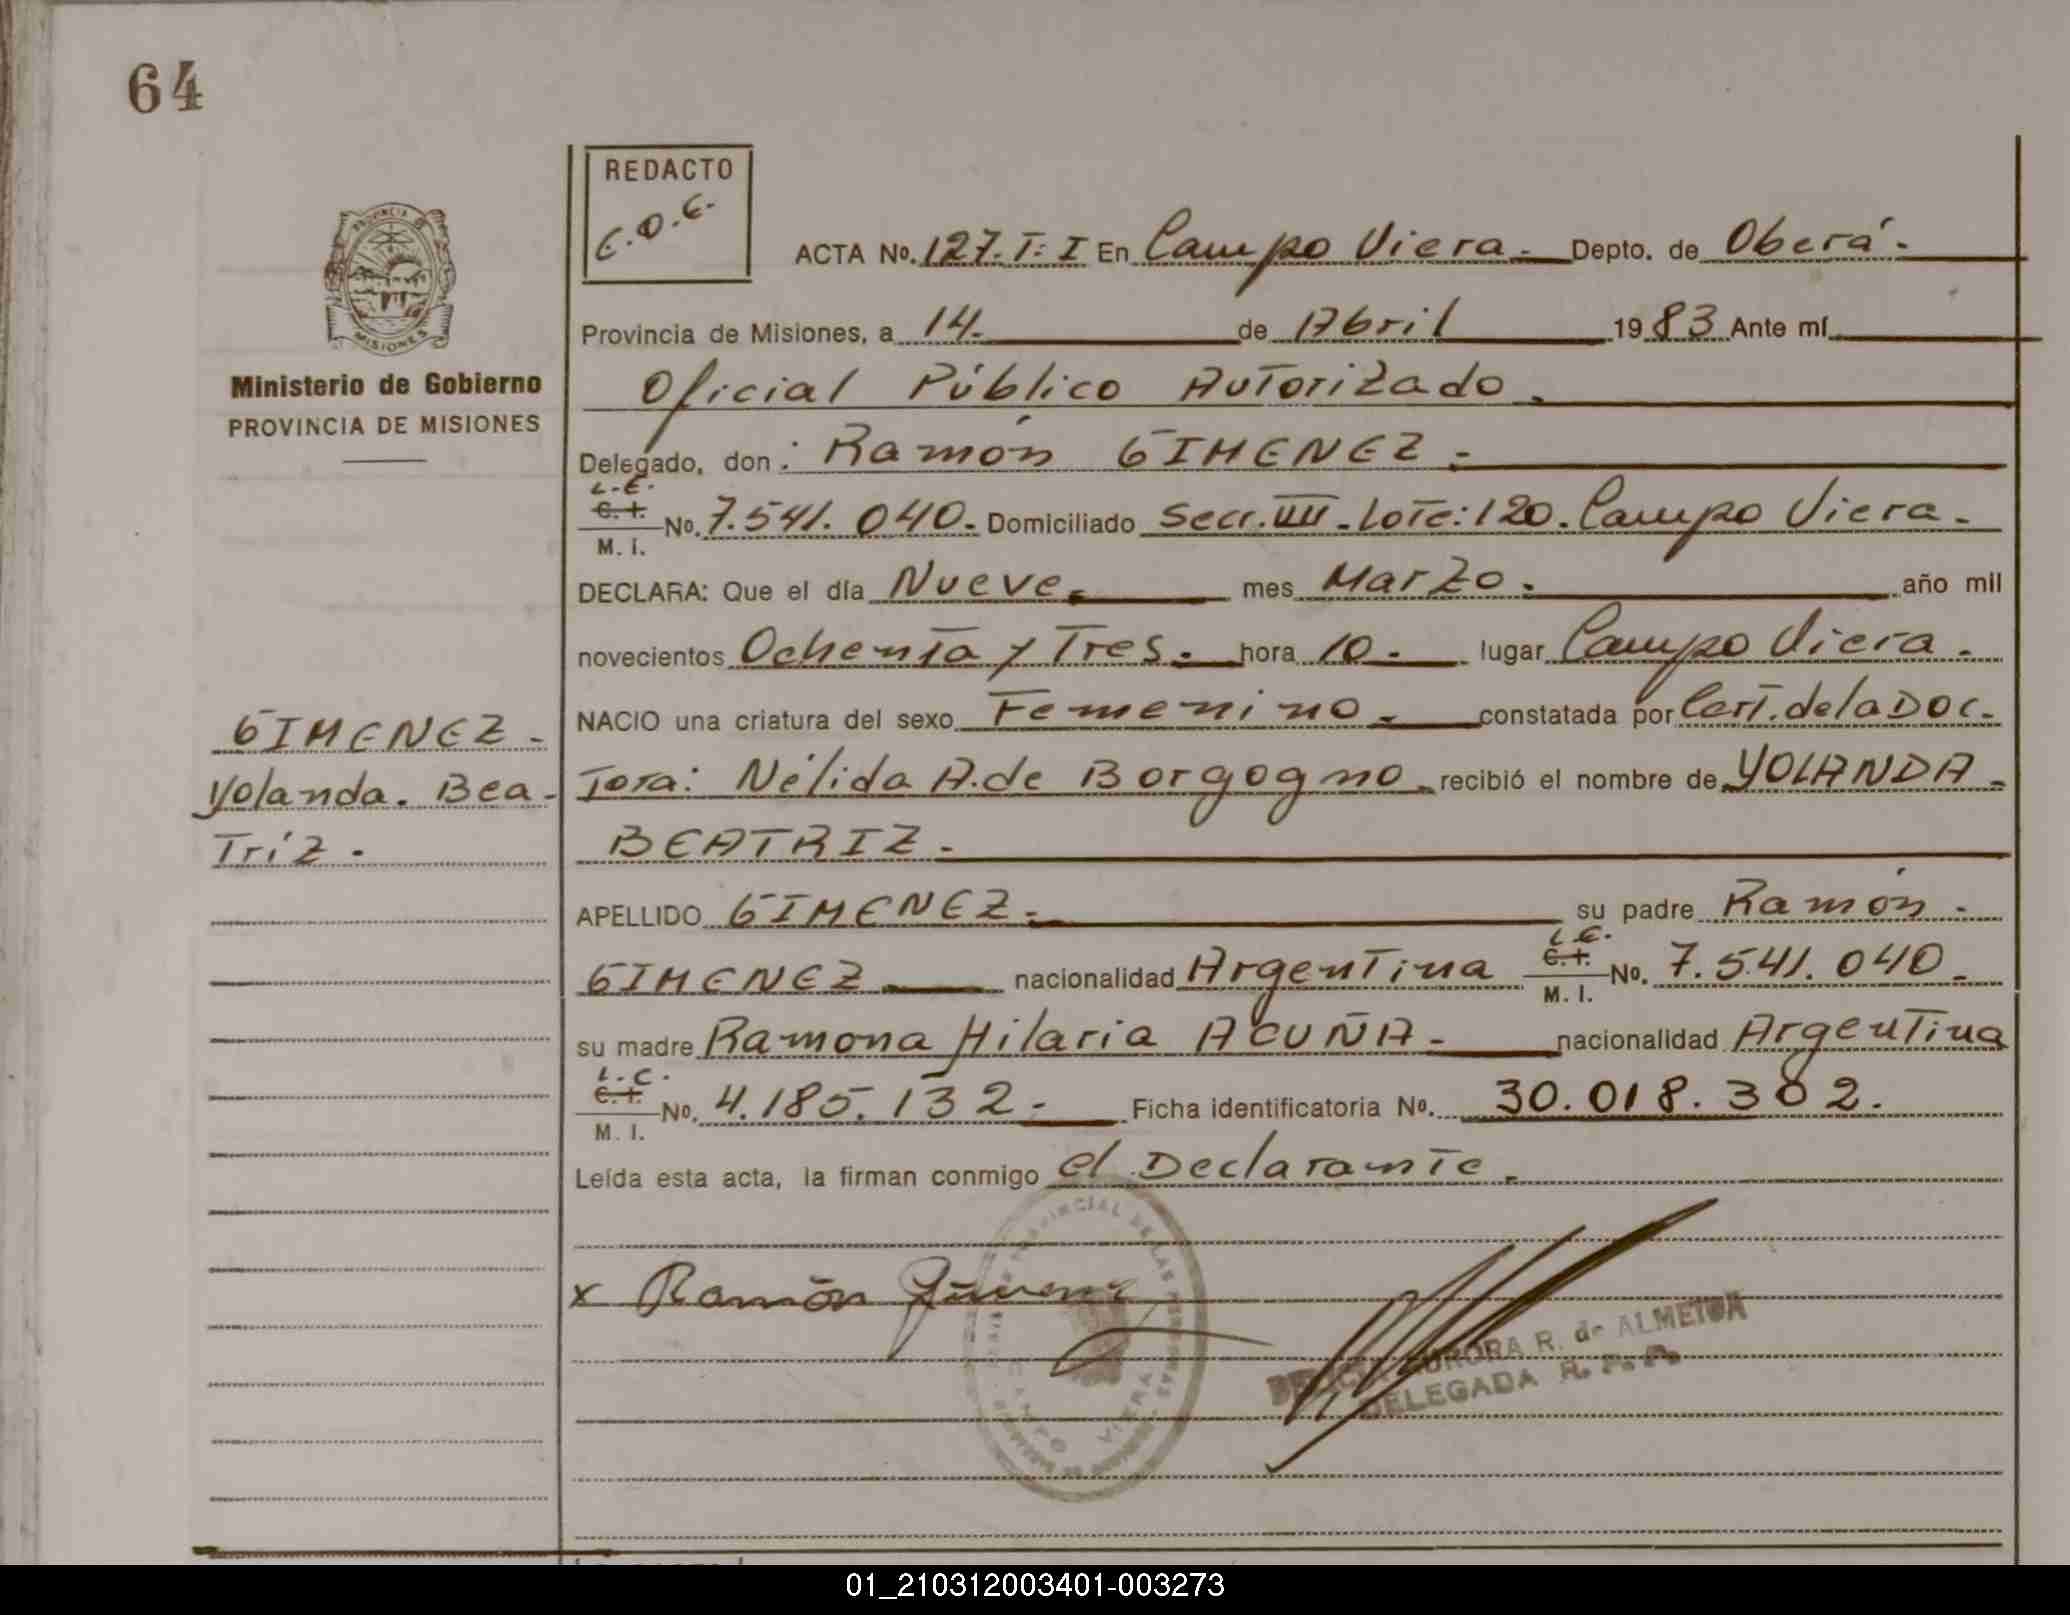 64
REDACTO
C.O.C.
ACTA No. 127. T: I En Campo Viera. Depto. de Oberá.
PROVINCIA DE
MISIONES
Ministerio de Gobierno
PROVINCIA DE MISIONES
Provincia de Misiones, a 14. de Abril 1983 Ante mí
Oficial Público Autorizado.
Delegado, don: Ramón GIMENEZ.
L.E.
C.I. No. 7.541.040. Domiciliado Secc. VIII. Lote: 120. Campo Viera.
M. I.
DECLARA: Que el día Nueve. mes Marzo. año mil
novecientos Ochenta y Tres. hora 10. lugar Campo Viera.
NACIO una criatura del sexo Femenino. constatada por Cert. de la Doc-
tora: Nélida A. de Borgogno. recibió el nombre de YOLANDA
BEATRIZ.
GIMENEZ.
Yolanda. Bea-
Tríz.
APELLIDO GIMENEZ. su padre Ramón.
L.E.
GIMENEZ nacionalidad Argentina C.I. No. 7.541.040.
M. I.
su madre Ramona Hilaria ACUÑA. nacionalidad Argentina
L.C.
C.I. No. 4.185.132. Ficha identificatoria No. 30.018.302.
M. I.
Leída esta acta, la firman conmigo el Declarante.
x Ramón Gimenez
PROVINCIAL DE LAS PERSONAS
CAMPO VIERA
AURORA R. de ALMEIDA
DELEGADA R. P. P.
01_210312003401-003273